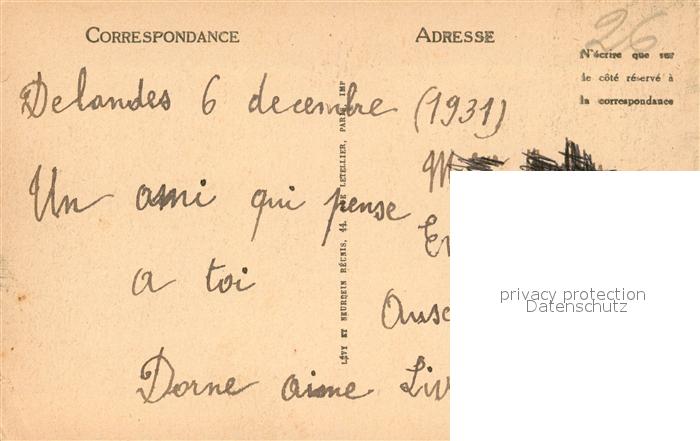 CORRESPONDANCE
ADRESSE
26
N'écrire que sur
le côté réservé à
la correspondance
Delandes 6 decembre (1931)
Un ami qui pense
a toi
Dorne aime
LÉVY ET NEURDEIN RÉUNIS, 44, RUE LETELLIER, PARIS, IMP
privacy protection
Datenschutz